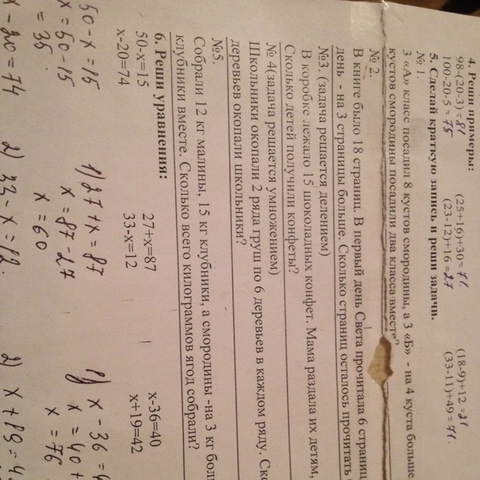 4. Реши примеры:
98-(20-3) =81 (25+16)+30=71 (18-9)+12 =21
100-20-5 =75 (23-12)+16 =27 (33-11)+49=71
5. Сделай краткую запись и реши задачи.
№ 1.
3 «А» класс посадил 8 кустов смородины, а 3 «Б» - на 4 куста больше
кустов смородины посадили два класса вместе?
№ 2.
В книге было 18 страниц. В первый день Света прочитала 6 страниц
день - на 3 страницы больше. Сколько страниц осталось прочитать
№3. (задача решается делением)
В коробке лежало 15 шоколадных конфет. Мама раздала их детям,
Сколько детей получили конфеты?
№ 4(задача решается умножением)
Школьники окопали 2 ряда груш по 6 деревьев в каждом ряду.
деревьев окопали школьники?
№5.
Собрали 12 кг малины, 15 кг клубники, а смородины -на 3 кг
клубники вместе. Сколько всего килограммов ягод собрали?
6. Реши уравнения:
50-x=15 27+x=87 x-36=40
x-20=74 33-x=12 x+19=42
50-x=15 1) 27+x=87 x-36=
x=50-15 x=87-27 x=40+
x=35 x=60 x=76
x-20=74 2) 33-x=12 2) x+19=4